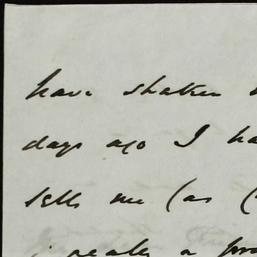 have shaken
days ago I ha
tells me (as (
really a